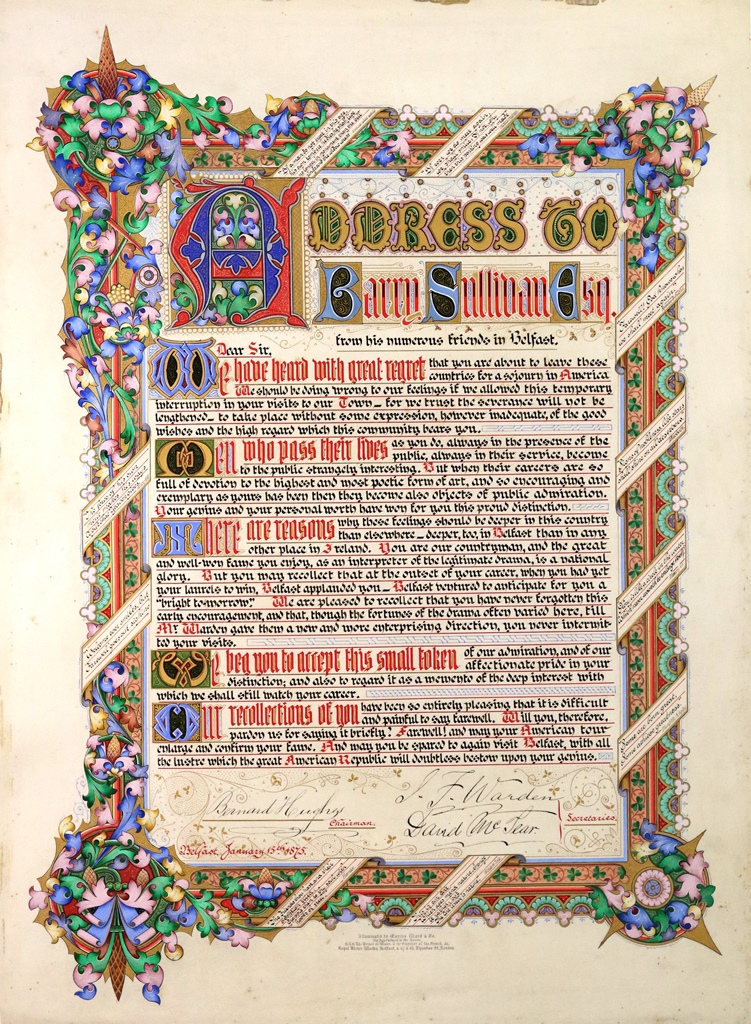 ADDRESS TO
Barry Sullivan Esq.
from his numerous friends in Belfast.
Dear Sir,
We have heard with great regret that you are about to leave these
countries for a sojourn in America
We should be doing wrong to our feelings if we allowed this temporary
interruption in your visits to our Town — for we trust the severance will not be
lengthened — to take place without some expression, however inadequate, of the good
wishes and the high regard which this community bears you.
Men who pass their lives as you do, always in the presence of the
public, always in their service, become
to the public strangely interesting. But when their careers are so
full of devotion to the highest and most poetic form of art, and so encouraging and
exemplary as yours has been then they become also objects of public admiration.
Your genius and your personal worth have won for you this proud distinction.
There are reasons why these feelings should be deeper in this country
than elsewhere — deeper, too, in Belfast than in any
other place in Ireland. You are our countryman, and the great
and well-won fame you enjoy, as an interpreter of the legitimate drama, is a national
glory. But you may recollect that at the outset of your career, when you had yet
your laurels to win, Belfast applauded you — Belfast ventured to anticipate for you a
"bright to-morrow." We are pleased to recollect that you have never forgotten this
early encouragement, and that, though the fortunes of the drama often varied here, till
Mr. Warden gave them a new and more enterprising direction, you never intermit-
ted your visits.
We beg you to accept this small token of our admiration, and of our
affectionate pride in your
distinction; and also to regard it as a memento of the deep interest with
which we shall still watch your career.
Our recollections of you have been so entirely pleasing that it is difficult
and painful to say farewell. Will you, therefore,
pardon us for saying it briefly? Farewell! and may your American tour
enlarge and confirm your fame. And may you be spared to again visit Belfast, with all
the lustre which the great American Republic will doubtless bestow upon your genius.
Bernard Hughes
Chairman.
J. F. Warden
David McTear
Secretaries.
Belfast, January 15th 1875.
Illuminated by Marcus Ward & Co.